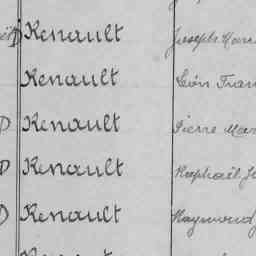 Renault Joseph
Renault Léon Fran
D Renault Pierre Mar
D Renault Raphaël J
D Renault Raymond
Renault